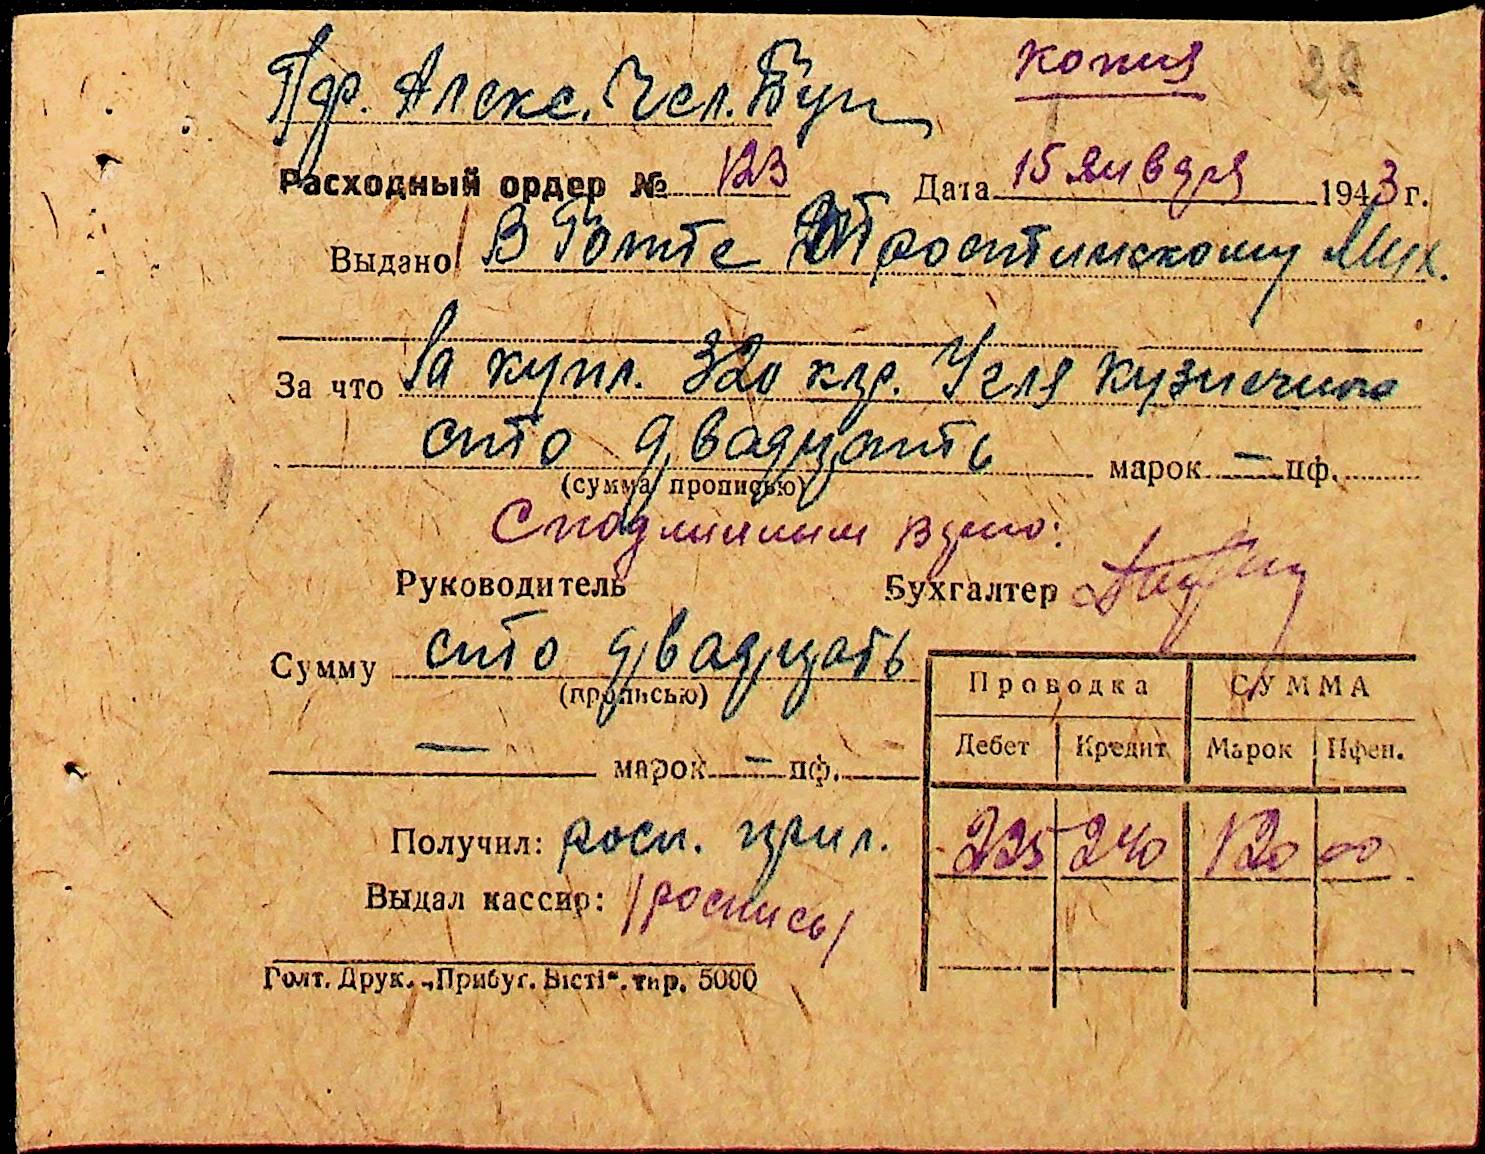 копия 22
Пр. Алекс.
Расходный ордер № 123 Дата 15 января 1943 г.
Выдано Тростинскому Мих.
За что За купл. 320 клр. Угля кузнечного
сто двадцать марок — пф.
(сумма прописью)
С подлинным верно:
Руководитель Бухгалтер
Сумму сто двадцать
(прописью)
— марок — пф.
Проводка СУММА
Дебет Кредит Марок Пфен.
225 240 120 00
Получил: росп. прил.
Выдал кассир: /роспись/
Голт. Друк. „Прибуг. Вісті“. тир. 5000